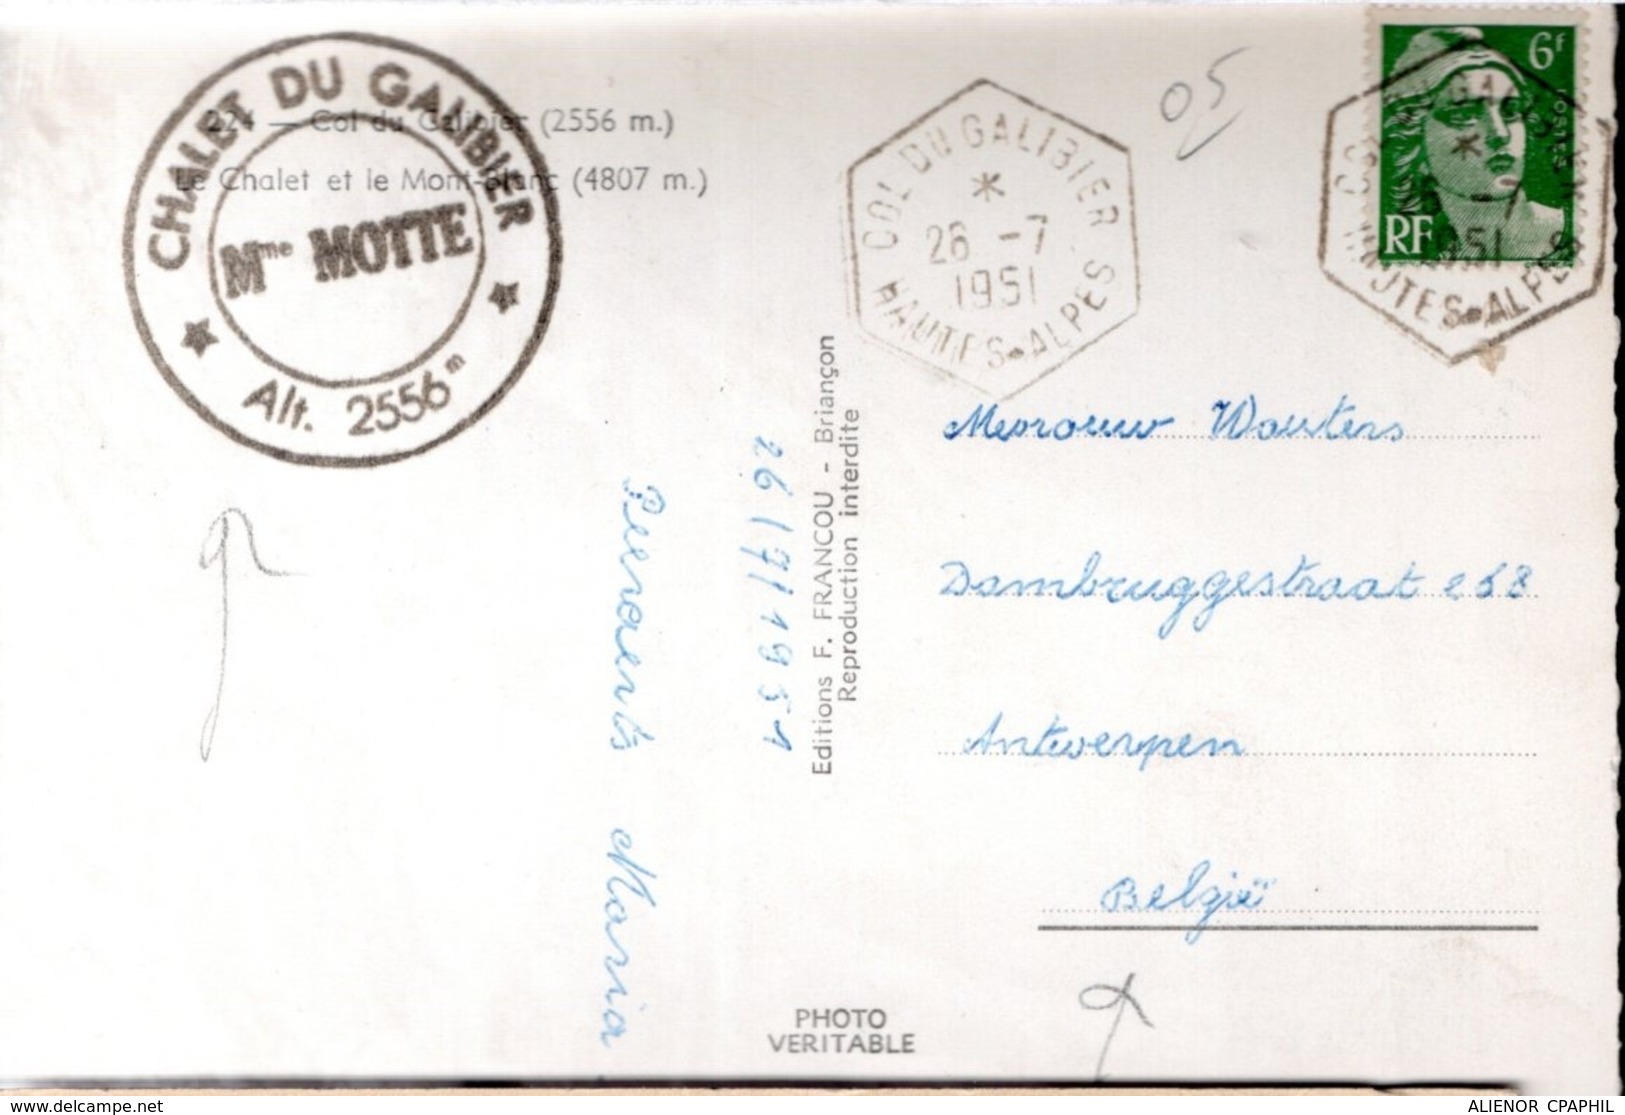 CHALET DU GALIBIER
Mme MOTTE
Alt. 2556m
224 — Col du Galibier (2556 m.)
Le Chalet et le Mont-Blanc (4807 m.)
COL DU GALIBIER
*
26 -7
1951
HAUTES-ALPES
05
6F
POSTES
RF
COL DU GALIBIER
*
1951
HAUTES-ALPES
Mevrouw Wouters
Dambruggestraat 268
Antwerpen
België
Editions F. FRANCOU - Briançon
Reproduction interdite
26/7/1951
Maria
PHOTO
VERITABLE
ALIENOR CPAPHIL